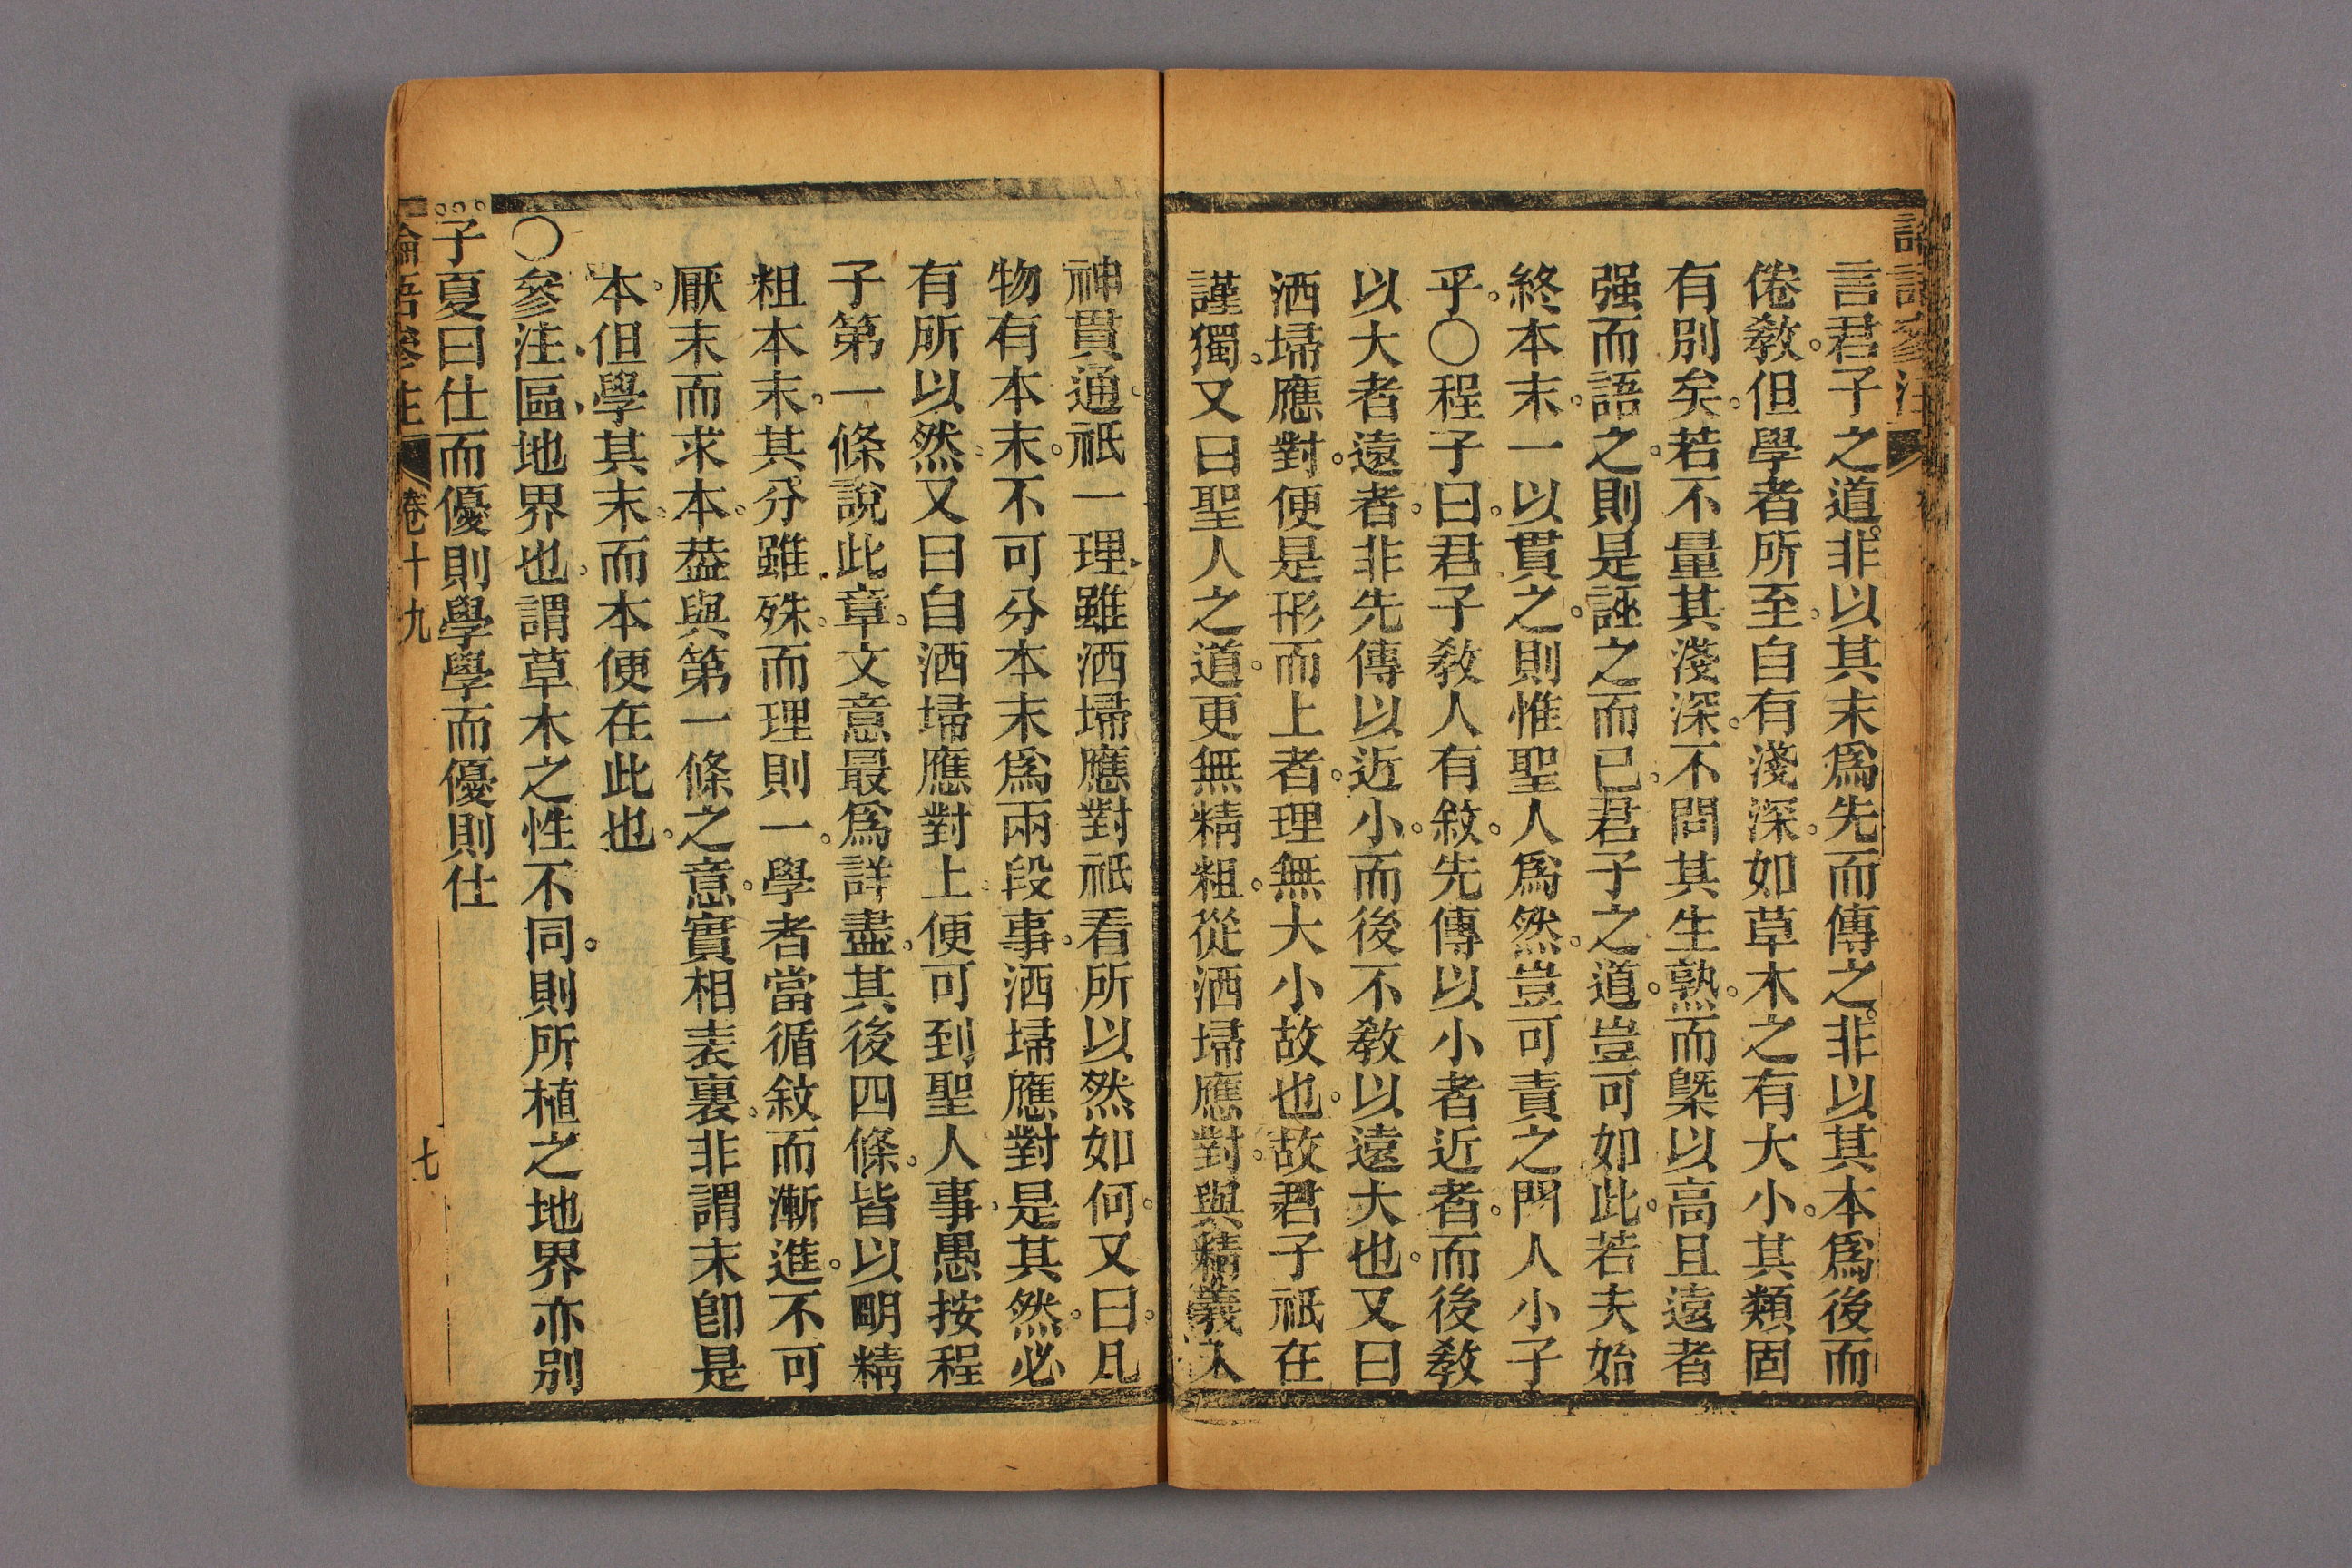 言君子之道。非以其末爲先而傳之。非以其本爲後而
倦教。但學者所至。自有淺深。如草木之有大小。其類固
有別矣。若不量其淺深。不問其生熟。而槩以高且遠者
强而語之。則是誣之而已。君子之道。豈可如此。若夫始
終本末。一以貫之。則惟聖人爲然。豈可責之門人小子
乎。○程子曰。君子教人有敘。先傳以小者近者。而後教
以大者遠者。非先傳以近小。而後不教以遠大也。又曰
洒埽應對。便是形而上者。理無大小故也。故君子祇在
謹獨。又曰聖人之道。更無精粗。從洒埽應對。與精義入
神貫通。祇一理。雖洒埽應對祇看所以然如何。又曰。凡
物有本末。不可分本末爲兩段事。洒埽應對是其然。必
有所以然。又曰自洒埽應對上。便可到聖人事。愚按程
子第一條說此章。文意最爲詳盡。其後四條。皆以明精
粗本末。其分雖殊。而理則一。學者當循敘而漸進。不可
厭末而求本。葢與第一條之意。實相表裏。非謂末卽是
本。但學其末。而本便在此也。
○參注。區。地界也。謂草木之性不同。則所植之地界亦別
子夏曰仕而優則學學而優則仕
論語參注 卷十九 七